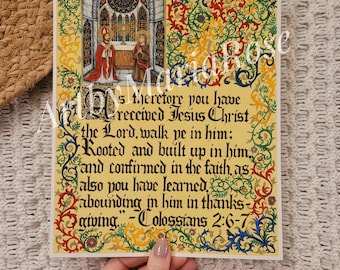 As therefore you have
received Jesus Christ
the Lord, walk ye in him;
Rooted and built up in him,
and confirmed in the faith, as
also you have learned,
abounding in him in thanks-
giving." - Colossians 2:6-7
ArtbyMariaRose